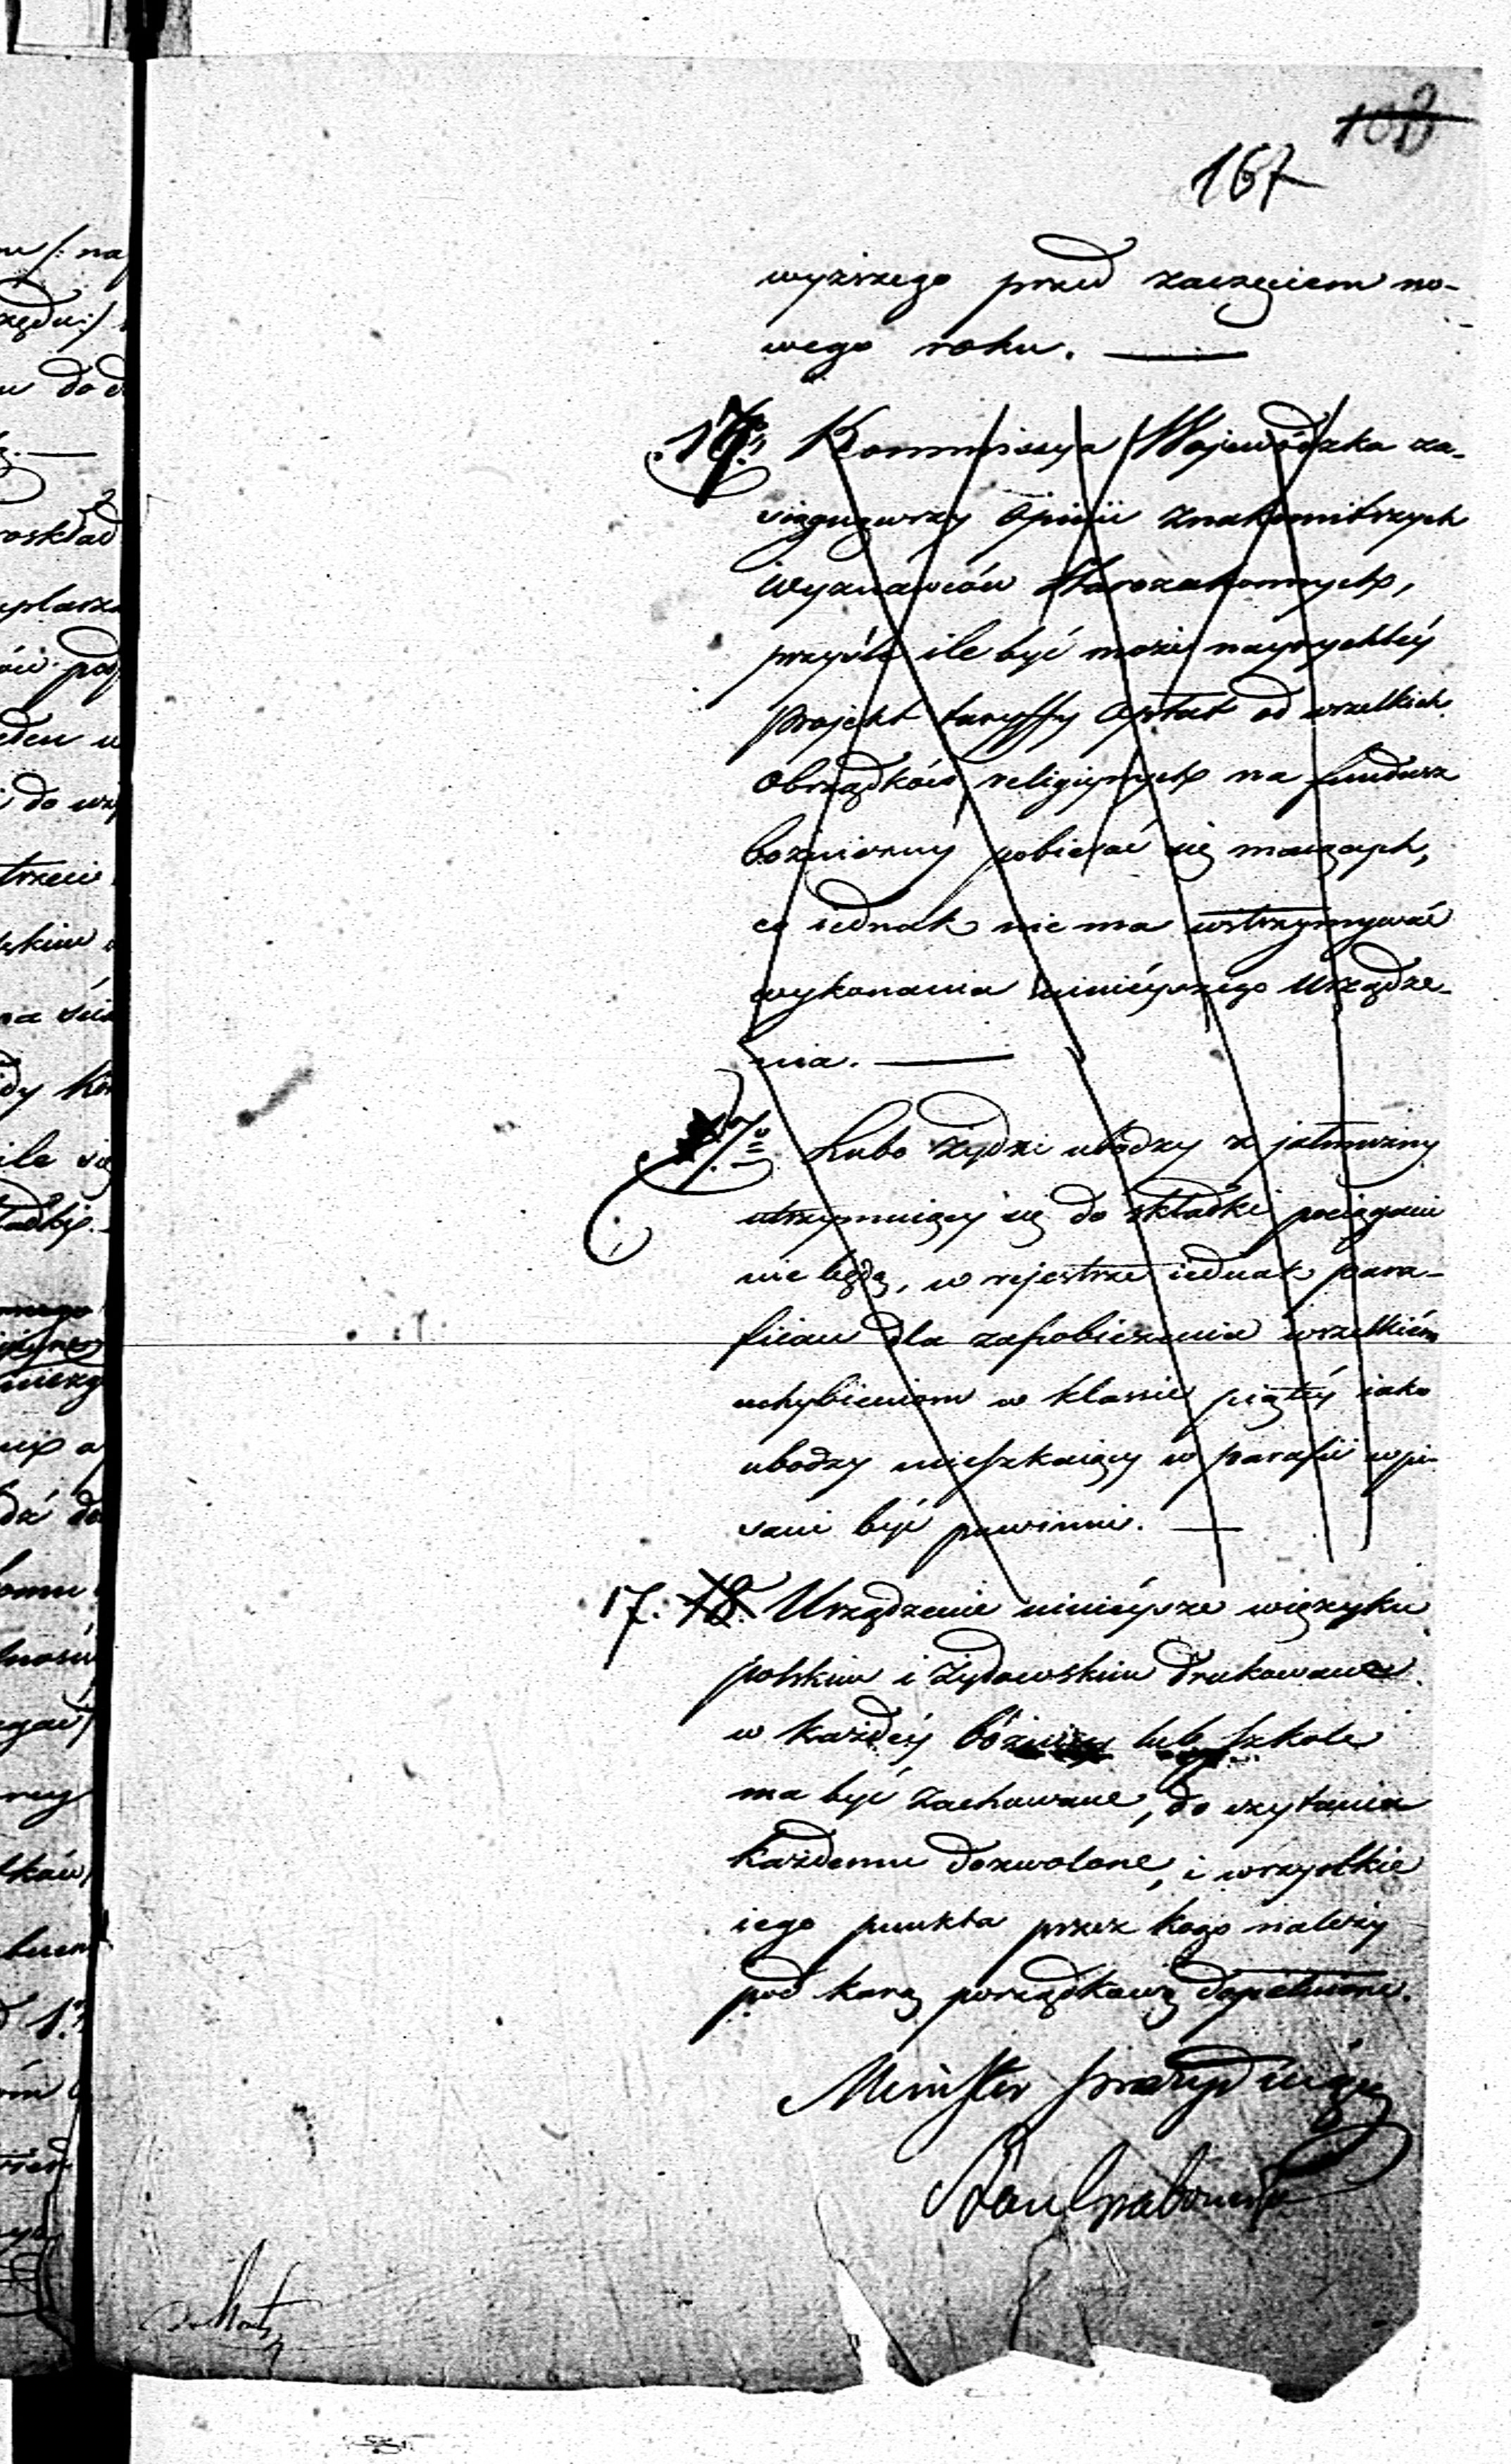 108
167
wyższego przed zaczęciem no-
wego roku. —
17. Kommissya Wojewódzka za-
siągnąwszy Opinii znakomitszych
Wyznawców Starozakonnych,
przyśle ile być może nayrychléy
projekt taryffy Opłat od wszelkich
Obrządków religiynych na fundusz
bożniczny pobierać się maiących,
co iednak nie ma wstrzymywać
wykonania ninieyszego Urządze-
nia. —
Lubo żydzi ubodzy z jałmużny
utrzymuiący się do składki pociągani
nie będą, w rejestrze iednak para-
fiian dla zapobieżenia wszelkiém
uchybieniom w klassie piątéy iako
ubodzy mieszkaiący w parafii wpi-
sani być powinni. —
17. 18. Urządzenie ninieysze więzyku
polskim i Żydowskim drukowane
w każdéy bóżnicy lub szkole
ma być zachowane, do czytania
każdemu dozwolone, i wszystkie
iego punkta przez kogo należy
pod karą porządkową dopełnione.
Minister prezyduiący
Stan Grabowski